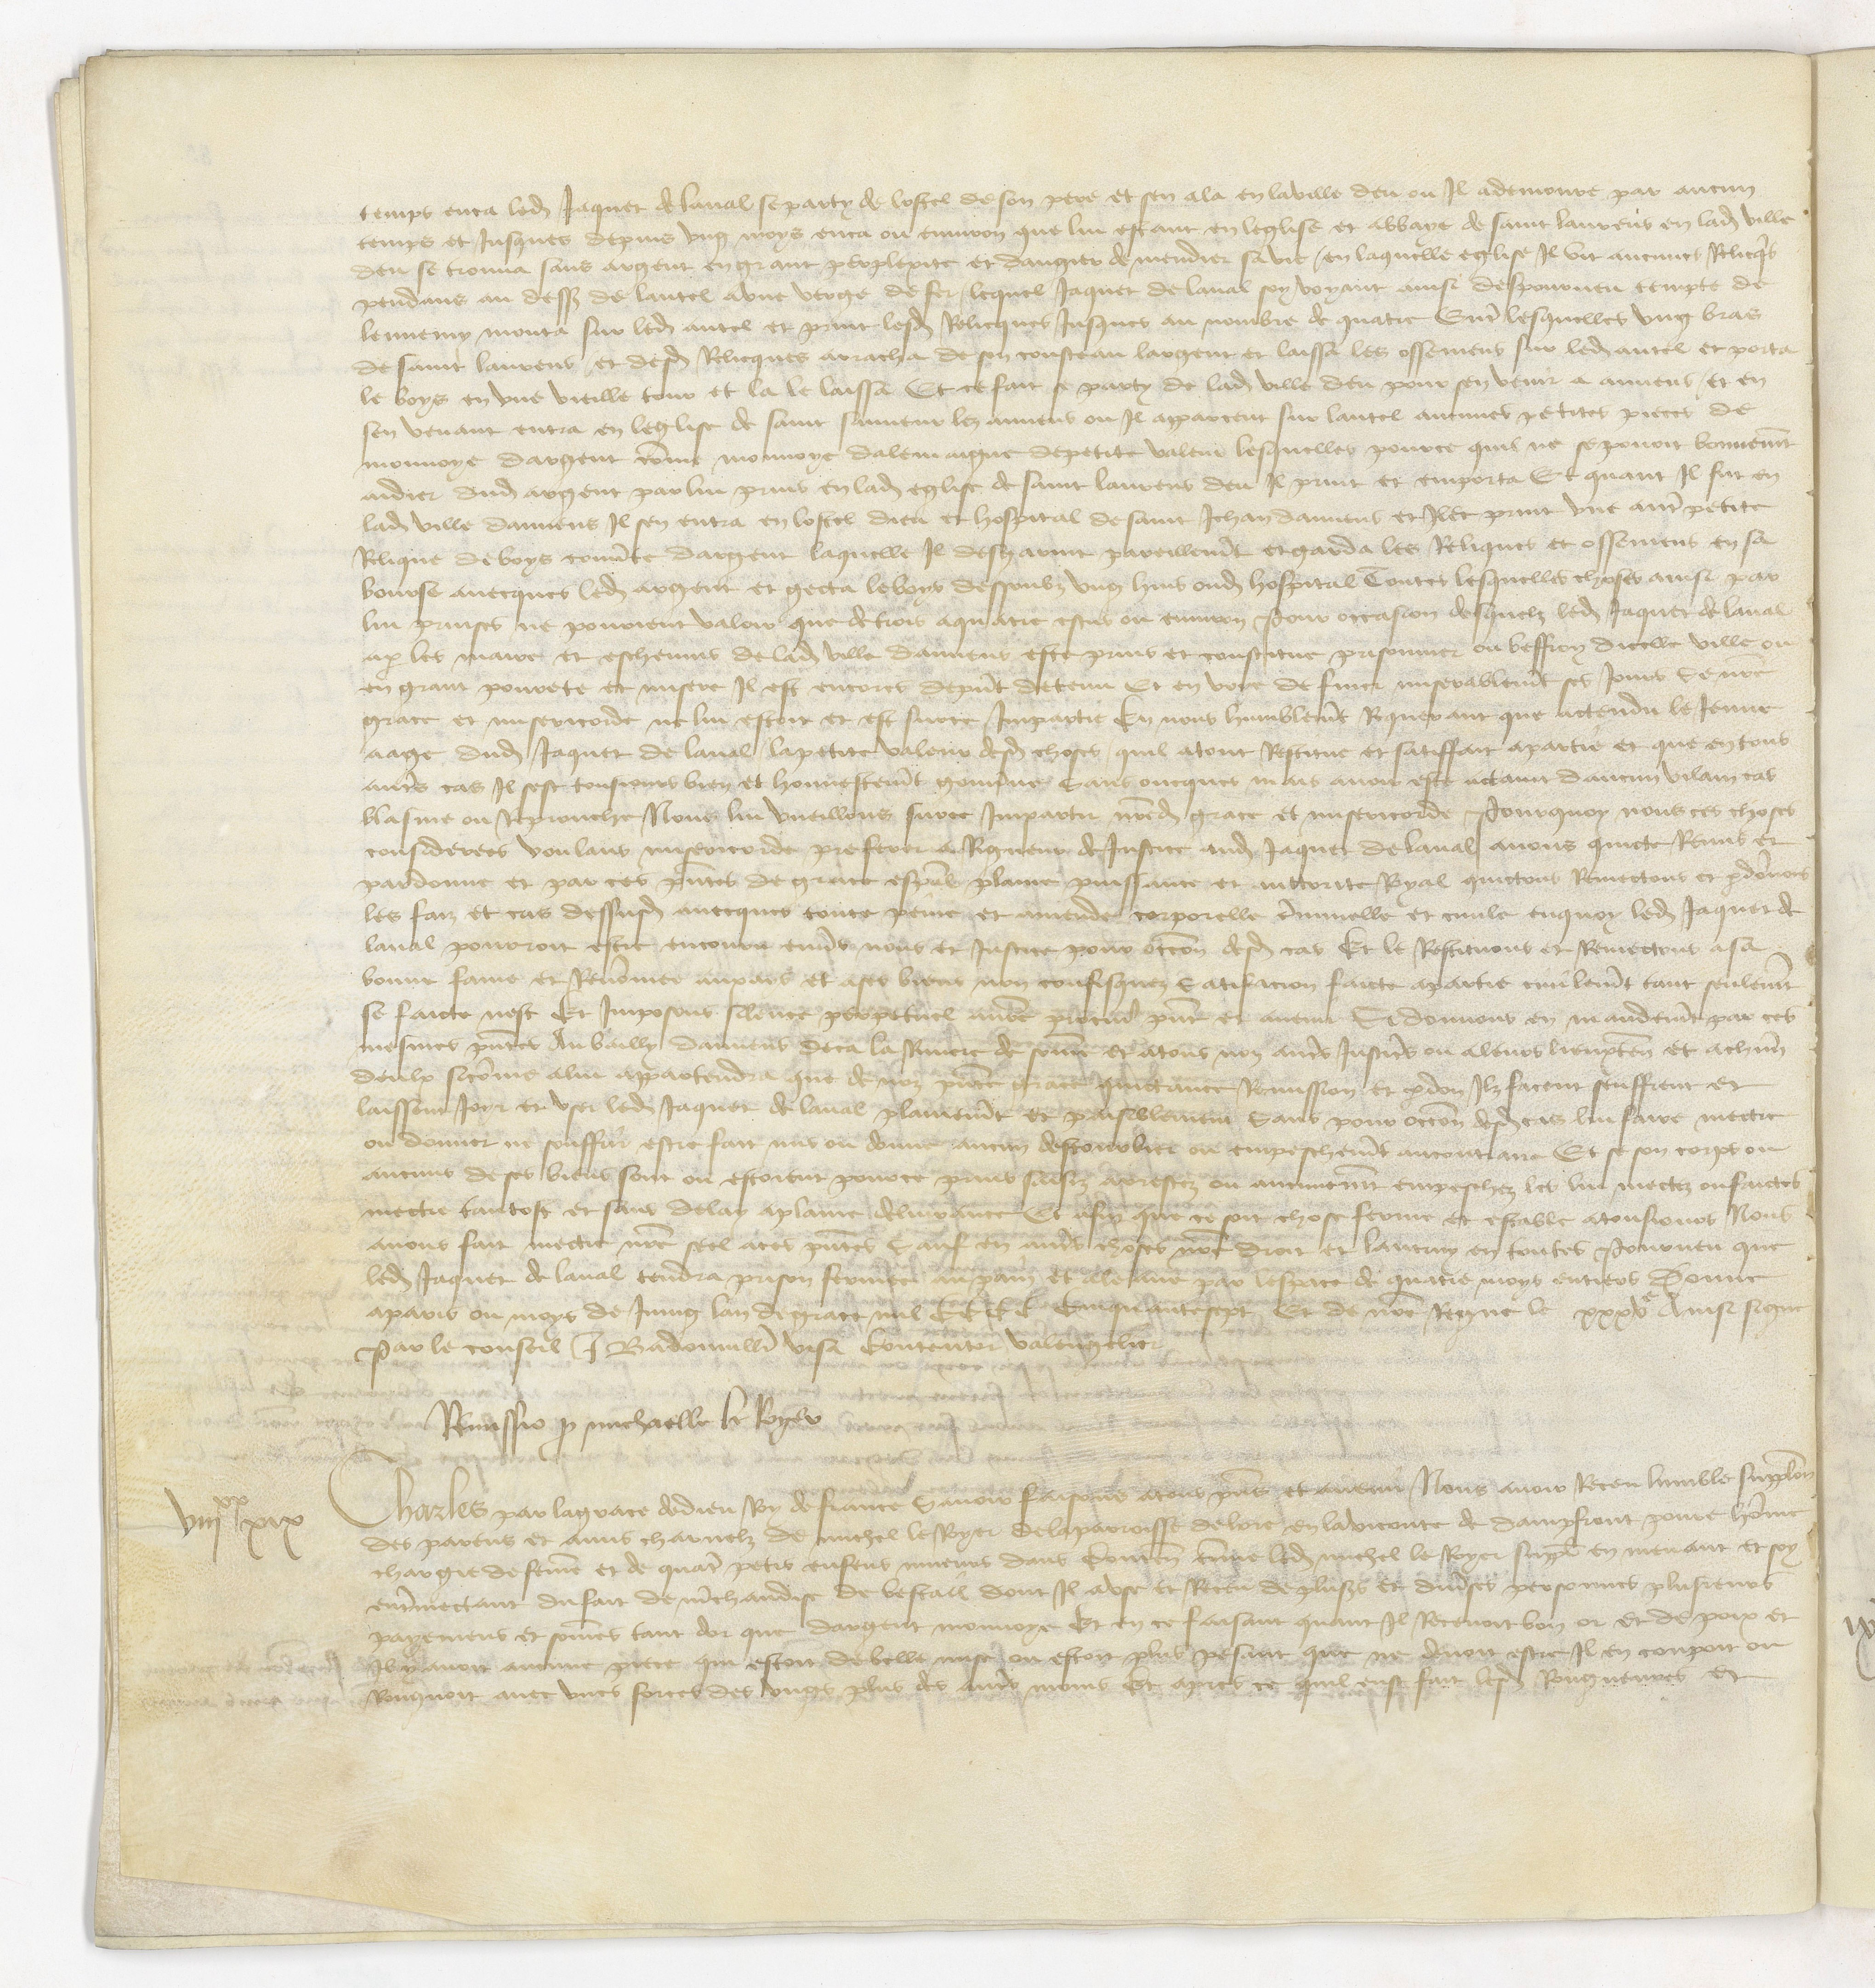 temps enca led Jaquet de laual se party de lostel de son pere et sen ala en la ville deu ou Il a demoure par aucun
temps et Jusques depuis vng moys enca ou enuiron que lui estant en leglise et abbaye de saint laurens en lad ville
deu se trouua sans argent en grant perplexite et dangier de mendier sa vie / en laquelle eglise Il vit aucunes Relicqs
pendans au dess de lautel a vne verge de fer / lequel Jaquet de laual soy voyant ainsi despourueu tempte de
lennemy monta sur led autel et print lesd Relicques Jusques au nombre de quatre Entre lesquelles vng bras
de saint laurens et desd Relicques arracha de son cousteau largent et laissa les ossemens sur led autel et porta
le boys en vne vieille tour et la le laissa Et ce fait se party de lad ville deu pour sen venir a amiens / et en
sen venant entra en leglise de saint sauueur lez amiens ou Il apparceut sur lautel aucunes petites pieces de
monnoye dargent come monnoye dalemaigne de petite valeur lesquelles pource quil ne se pouoit bonnement
aidier dud argent par lui prins en lad eglise de saint laurens deu Il print et emporta Et quant Il fut en
lad ville damiens Il sen entra en lostel dieu et hospital de saint Jehan damiens et Ilec print vne autre petite
Relique de boys couuerte dargent laquelle Il desgarnit pareillemt et garda les Reliques et ossemens en sa
bourse auecques led argent et gecta le boys dessoubz vng huis oud hospital Toutes lesquelles choses ainsi par
lui prinses ne pouoient valoir que de trois a quatre escus ou enuiron Pour occasion desquelz led Jaquet de laual
a p les maire et escheuins de lad ville damiens este prins et constitue prisonnier ou beffroy dicelle ville ou
en grant pourete et misere Il est encores depnt detenu Et en voye de finer miserablemt ses Jours se nre
grace et misericorde ne lui estoit et est surce Impartie En nous humblemt Requerant que actendu le Jeune
aage dud Jaquet de laual / la petite valeur desd choses / quil a tout Restitue et satisffait a partie et que en tous
autres cas Il sest tousiours bien et honnestemt gouuerne sans oncques mais auoir este actaint daucun vilain cas
blasme ou Reprouche Nous lui vueillons surce Impartir nred grace et misericorde Pourquoy nous ces choses
considerees voulans misericorde preferer a Rigueur de Justice aud Jaquet de laual auons quicte Remis et
pardonne et par ces pntes de grace espal plaine puissance et auctorite Royal quictons Remectons et pdonnons
les faiz et cas dessusd auecques toute peine et amende corporelle criminelle et ciuile en quoy led Jaquet de
laual pourroit estre encouru enuers nous et Justice pour occon desd cas Et le Restituons et Remectons a sa
bonne fame et Renomee au pais et a ses biens non confisquez satisfacion faicte a partie ciuilemt tant seulemt
se faicte nest Et Imposons silence perpetuel a nre procur pnt et auenir Si donnons en mandemt par ces
mesmes pntes Au bailly damiens deca la Riuiere de some et a tous noz autres Justiciers ou a leurs lieuxten et a chun
deulx si come a lui appartendra que de noz pntes grace quictance Remission et pdon Ilz facent seuffrent et
laissent Joyr et vser led Jaquet de laual plainemt et paisiblement sans pour occon desd cas lui faire mectre
ou donner ne souffrir estre fait mis ou donne aucun destourbier ou empeschemt au contraire Et se son corps ou
aucuns de ses biens sont ou estoient pource prins saisiz arrestez ou aucunemt empeschez les lui mectez ou faictes
mectre tantost et sans delay a plaine deliurance Et afin que ce soit chose ferme et estable a tousiours Nous
auons fait mectre nre seel a ces pntes Sauf en autres choses nre droit et lautruy en toutes Pourueu que
led Jaquet de laual tendra prison fermee au pain et a leaue par lespace de quatre moys entiers Donne
a paris ou moys de Juing lan de grace mil CCCC Cinquantesept Et de nre Regne le xxxve Ainsi signe
Par le conseil J Badouuillier visa Contentor valengelier
Remissio p michaelle le Royer
viijxx xix
Charles par la grace de dieu Roy de france Sauoir faisons a tous pns et auenir Nous auoir Receu lumble supplicon
des parens et amis charnelz de michel le Royer de la parroisse de lore en la viconte de dampfront poure home
chargie de feme et de quatre petis enfens mineurs dans Contenant come led michel le Royer suppl en menant et soy
entremectant du fait de mchandise de bestail dont Il a vse et Receu de pluss et diuerses personnes plusieurs
payemens et somes tant dor que dargent monnoye Et en ce faisant quant Il Receuoit bon or et de poix et
Il y auoit aucune piece qui estoit de belle mise ou estoit plus pesant que ne deuoit estre Il en coupoit ou
Rongnoit auec vnes forces des vngs plus des autres moins Et apres ce quil eust fait lesd Rongneures et